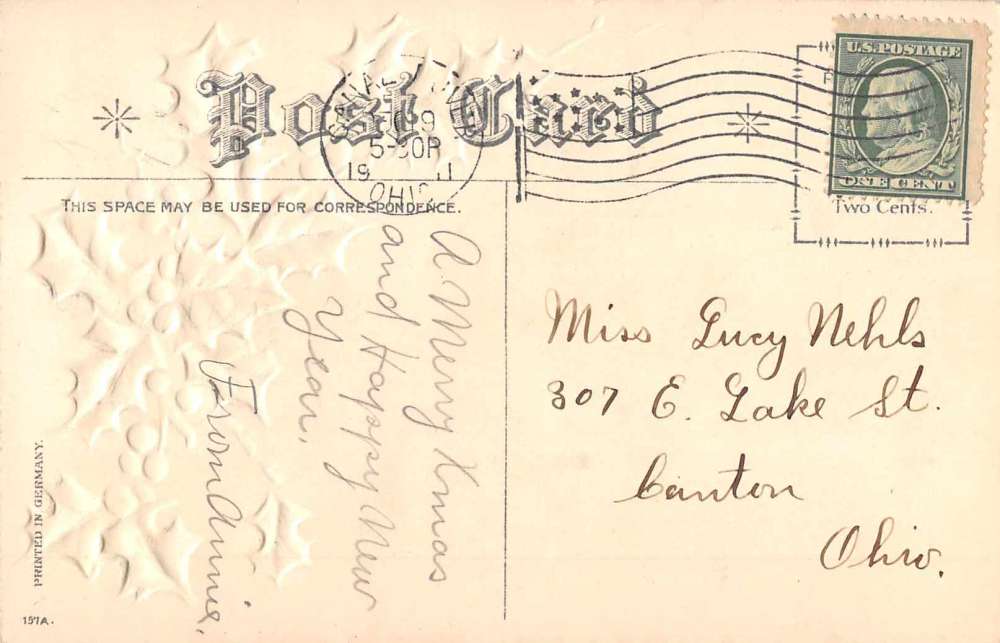 Post Card
THIS SPACE MAY BE USED FOR CORRESPONDENCE.
5-30P
19 11
OHIO
U.S. POSTAGE
ONE CENT
Two Cents.
A Merry Xmas
and Happy New
Year.
From Annie.
Miss Lucy Nehls
307 E. Lake St.
Canton
Ohio.
PRINTED IN GERMANY.
157A.